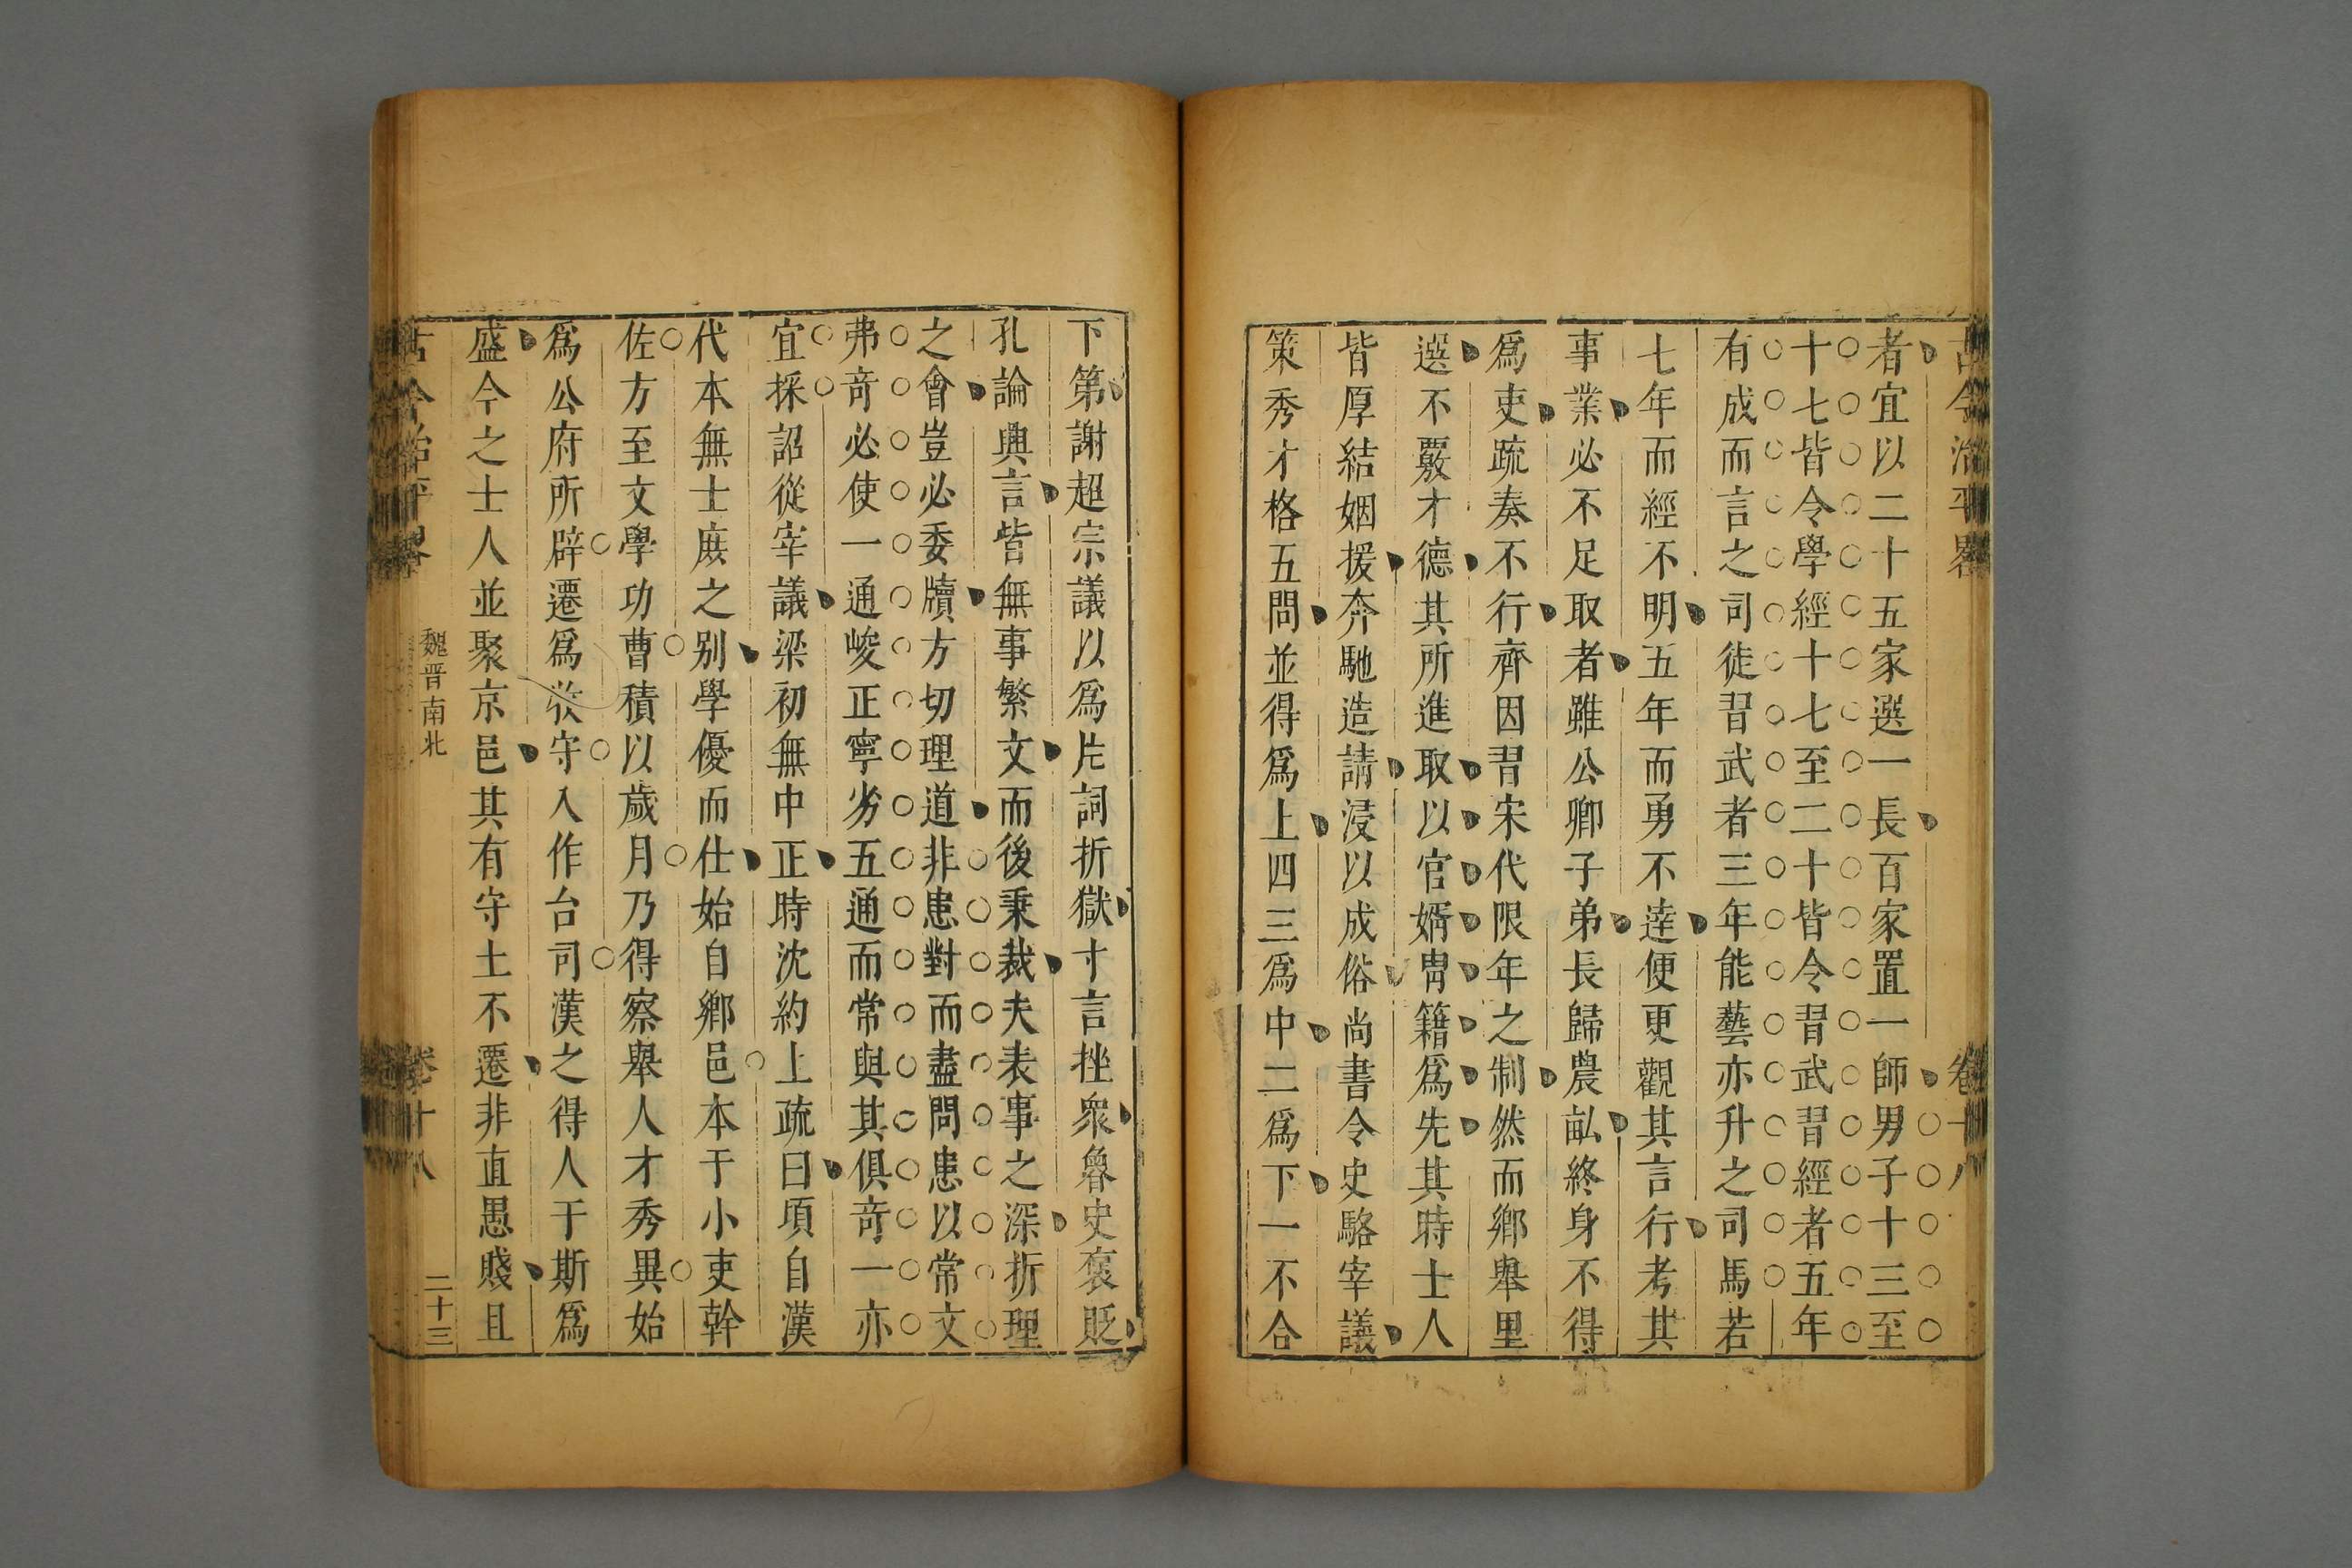 古今治平畧 卷十八
者宜以二十五家選一長百家置一師男子十三至
十七皆令學經十七至二十皆令習武習經者五年
有成而言之司徒習武者三年能藝亦升之司馬若
七年而經不明五年而勇不達便更觀其言行考其
事業必不足取者雖公卿子弟長歸農畝終身不得
爲吏疏奏不行齊因習宋代限年之制然而鄉舉里
選不覈才德其所進取以官婿胄籍爲先其時士人
皆厚結姻援奔馳造請浸以成俗尚書令史駱宰議
策秀才格五問並得爲上四三爲中二爲下一不合
下第謝超宗議以爲片詞折獄寸言挫衆魯史褒貶
孔論興言皆無事繁文而後秉裁夫表事之深折理
之會豈必委牘方切理道非患對而盡問患以常文
弗奇必使一通峻正寧劣五通而常與其俱奇一亦
宜採詔從宰議梁初無中正時沈約上疏曰頃自漢
代本無士庶之别學優而仕始自鄉邑本于小吏幹
佐方至文學功曹積以歲月乃得察舉人才秀異始
爲公府所辟遷爲牧守入作台司漢之得人于斯爲
盛今之士人並聚京邑其有守土不遷非直愚賤且
古今治平畧 魏晉南北 卷十八 二十三